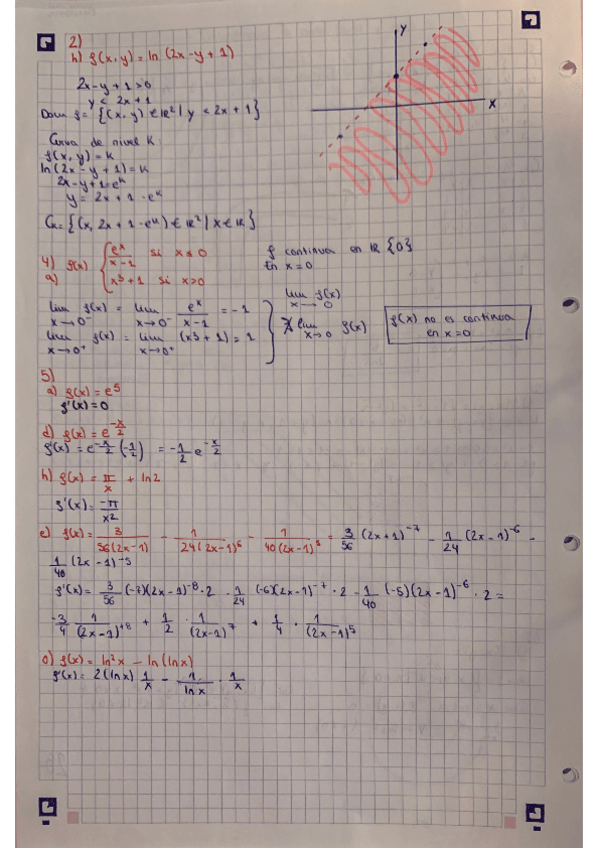 2)
h) f(x,y) = ln (2x-y+1)
2x-y+1>0
y < 2x+1
Dom f = {(x,y) ∈ R² | y < 2x+1}
Y
X
Curva de nivel K
f(x,y) = K
ln(2x-y+1) = K
2x-y+1=e^k
y = 2x+1-e^k
C_k = {(x, 2x+1-e^k) ∈ R² | x ∈ R}
4) f(x) { e^x/(x-1) si x ≤ 0
a) x³+1 si x>0
f continua en R {0}
En x=0
lim x→0⁻ f(x) = lim x→0⁻ e^x/(x-1) = -1
lim x→0⁺ f(x) = lim x→0⁺ (x³+1) = 1
lim x→0 f(x)
∄ lim x→0 f(x)
f(x) no es continua
en x=0
5)
a) f(x) = e^5
f'(x) = 0
d) f(x) = e^(-x/2)
f'(x) = e^(-x/2) (-1/2) = -1/2 e^(-x/2)
h) f(x) = π/x + ln2
f'(x) = -π/x²
e) f(x) = 3/(56(2x-1)) - 1/(24(2x-1)⁶) - 1/(40(2x-1)⁵) = 3/56 (2x+1)⁻⁷ - 1/24 (2x-1)⁻⁶ -
1/40 (2x-1)⁻⁵
f'(x) = 3/56 (-7)(2x-1)⁻⁸·2 - 1/24 (-6)(2x-1)⁻⁷·2 - 1/40 (-5)(2x-1)⁻⁶·2 =
-3/4 1/(2x-1)⁺⁸ + 1/2 · 1/(2x-1)⁷ + 1/4 · 1/(2x-1)⁵
o) f(x) = ln²x - ln(lnx)
f'(x) = 2(lnx) 1/x - 1/lnx · 1/x